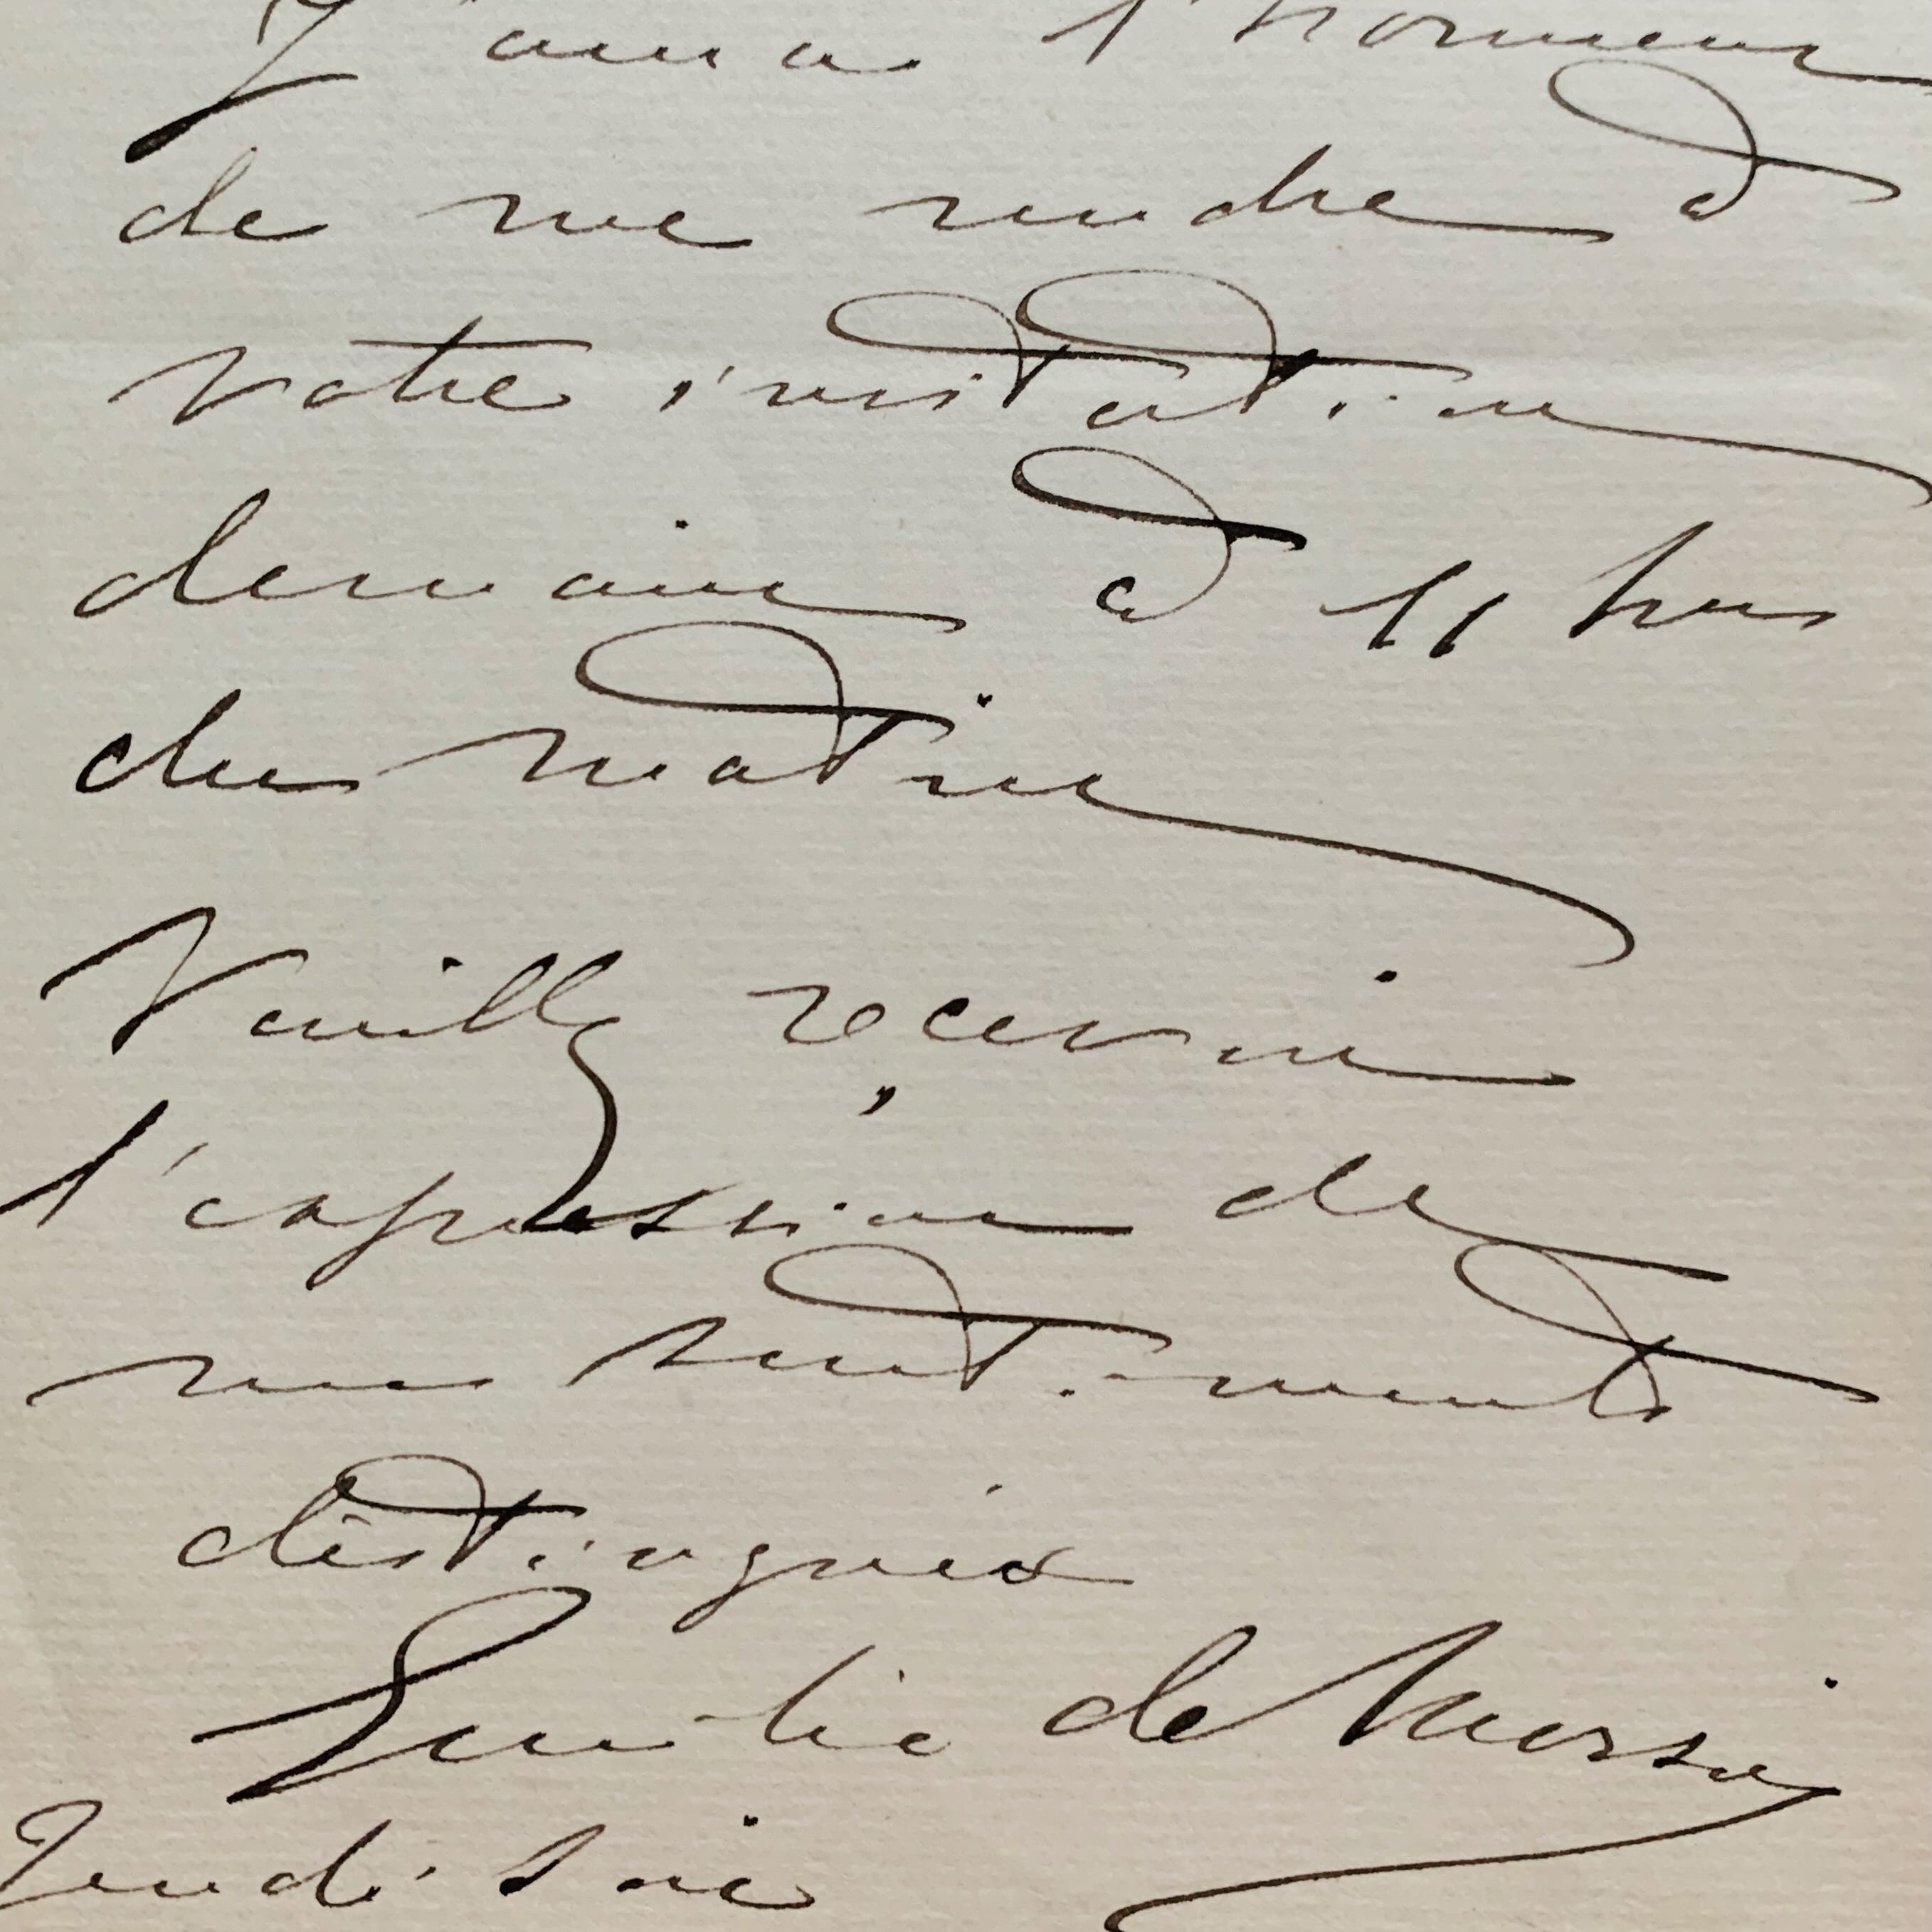 J'aurai l'honneur
de me rendre à
votre invitation
demain à 11 hres
du matin
Veuillez recevoir
l'expression de
mes sentiments
distingués
Emilie de Morsier
Jeudi soir